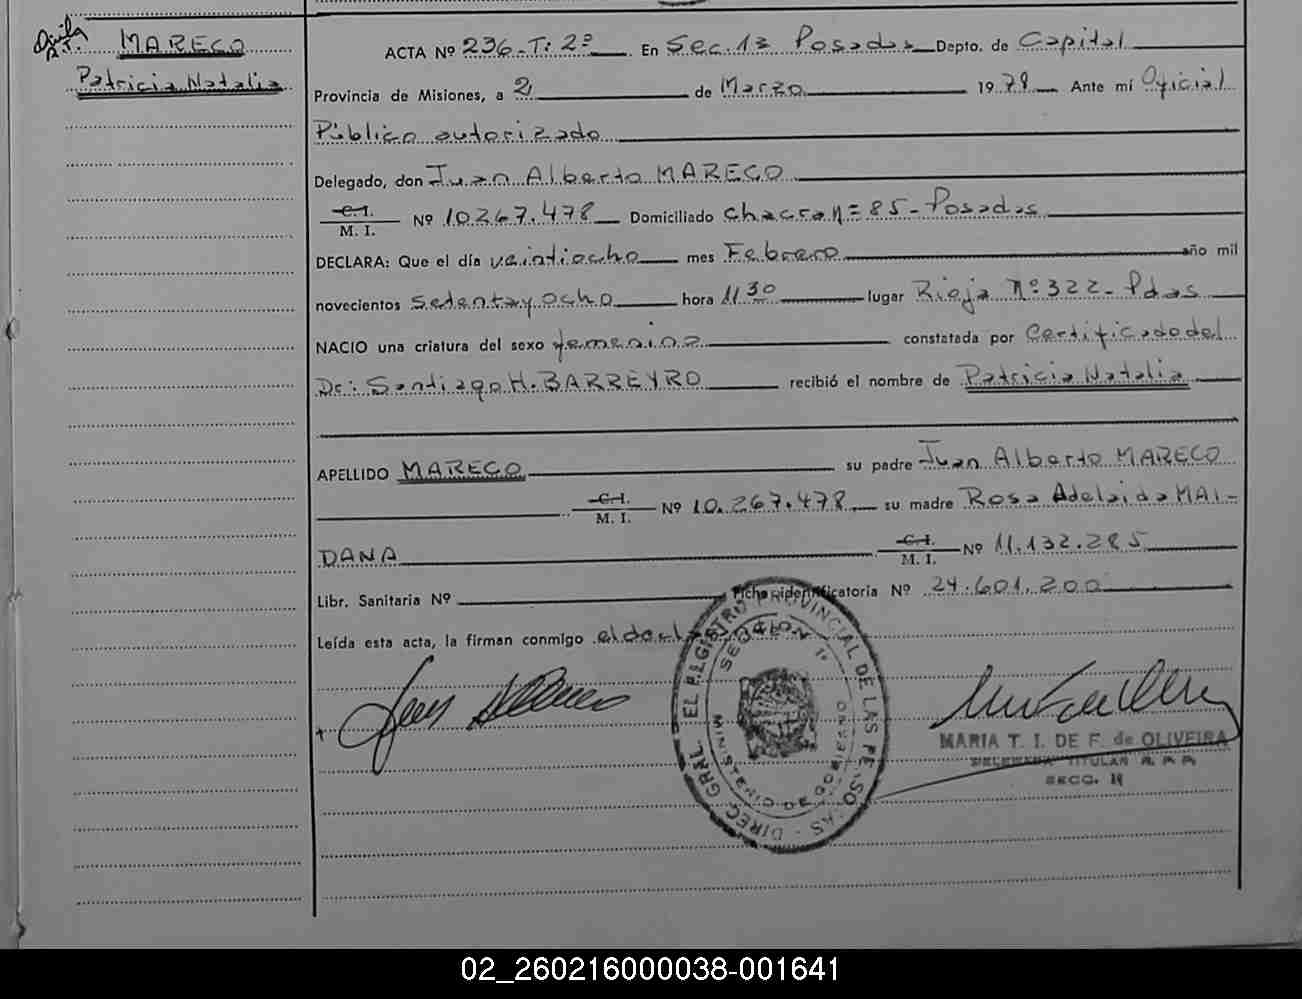 MARECO
Patricia Natalia
ACTA Nº 236-T: 2º En Sec. 1ª Posadas Depto. de Capital
Provincia de Misiones, a 2 de Marzo 1978 Ante mí Oficial
Público autorizado
Delegado, don Juan Alberto MARECO
C.I.
M. I. Nº 10.267.478 Domiciliado chacra n= 85-Posadas
DECLARA: Que el día veintiocho mes Febrero año mil
novecientos setenta y ocho hora 11 30 lugar Rioja Nº 322- Pdas
NACIO una criatura del sexo femenino constatada por Certificado del
Dr: Santiago H. BARREYRO recibió el nombre de Patricia Natalia
APELLIDO MARECO su padre Juan Alberto MARECO
C.I.
M. I. Nº 10.267.478 su madre Rosa Adelaida MAI-
DANA C.I.
M. I. Nº 11.132.285
Libr. Sanitaria Nº Ficha identificatoria Nº 24.601.200
Leída esta acta, la firman conmigo el decl
DIREC. GRAL. EL REGISTRO PROVINCIAL DE LAS PERSONAS
SECCION 1ª
MINISTERIO DE GOBIERNO
MARIA T. I. DE F. de OLIVEIRA
TITULAR R. P. P.
SECC. 1ª
02_260216000038-001641